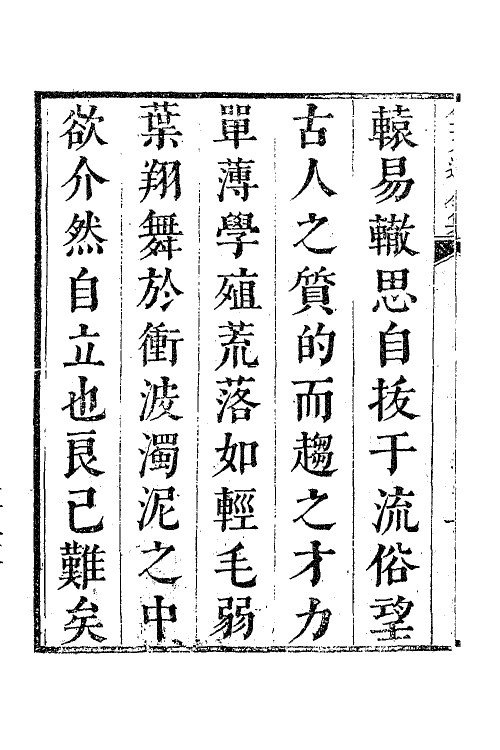 轅易轍思自拔于流俗望
古人之質的而趨之才力
單薄學殖荒落如輕毛弱
葉翔舞於衝波濁泥之中
欲介然自立也艮已難矣